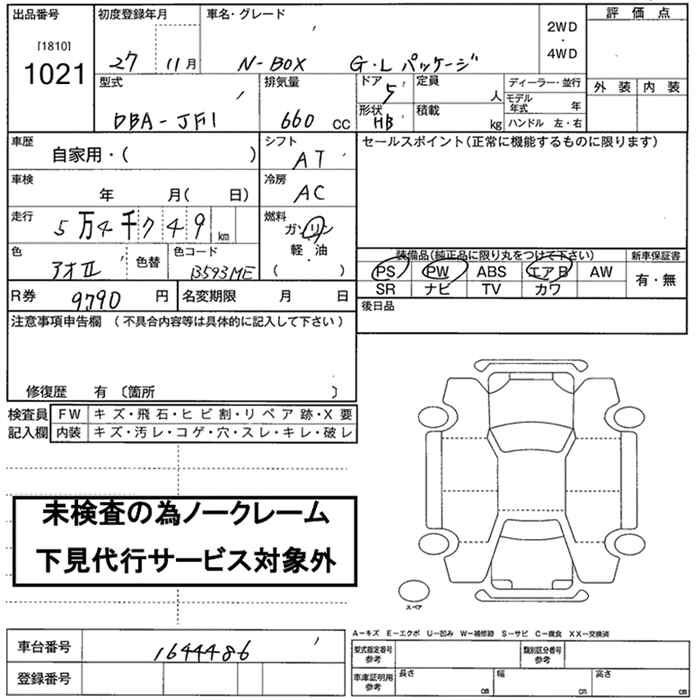 出品番号 初度登録年月 車名・グレード 評価点
[1810] 2WD
1021 27 11月 N-BOX G・Lパッケージ ・
4WD
型式 排気量 ドア 5 定員 人 ディーラー・並行 外装 内装
モデル年式 年
DBA-JF1 660 cc 形状 HB 積載 kg ハンドル 左・右
車歴 自家用・( ) シフト AT セールスポイント(正常に機能するものに限ります)
車検 年 月( 日) 冷房 AC
走行 5万4千749km 燃料 ガソリン
軽・油
( )
色 アオⅡ 色替 色コード B593ME
装備品(純正品に限り丸をつけて下さい) 新車保証書
PS PW ABS エアB AW 有・無
SR ナビ TV カワ
R券 9790円 名変期限 月 日 後日品
注意事項申告欄(不具合内容等は具体的に記入して下さい)
修復歴 有〔箇所 〕
検査員 FW キズ・飛石・ヒビ割・リペア跡・X要
記入欄 内装 キズ・汚レ・コゲ・穴・スレ・キレ・破レ
未検査の為ノークレーム
下見代行サービス対象外
スペア
A-キズ E-エクボ U-凹み W-補修跡 S-サビ C-腐食 XX-交換済
車台番号 1644486 型式指定番号 参考 類別区分番号 参考
登録番号 車庫証明用 参考 長さ cm 幅 cm 高さ cm